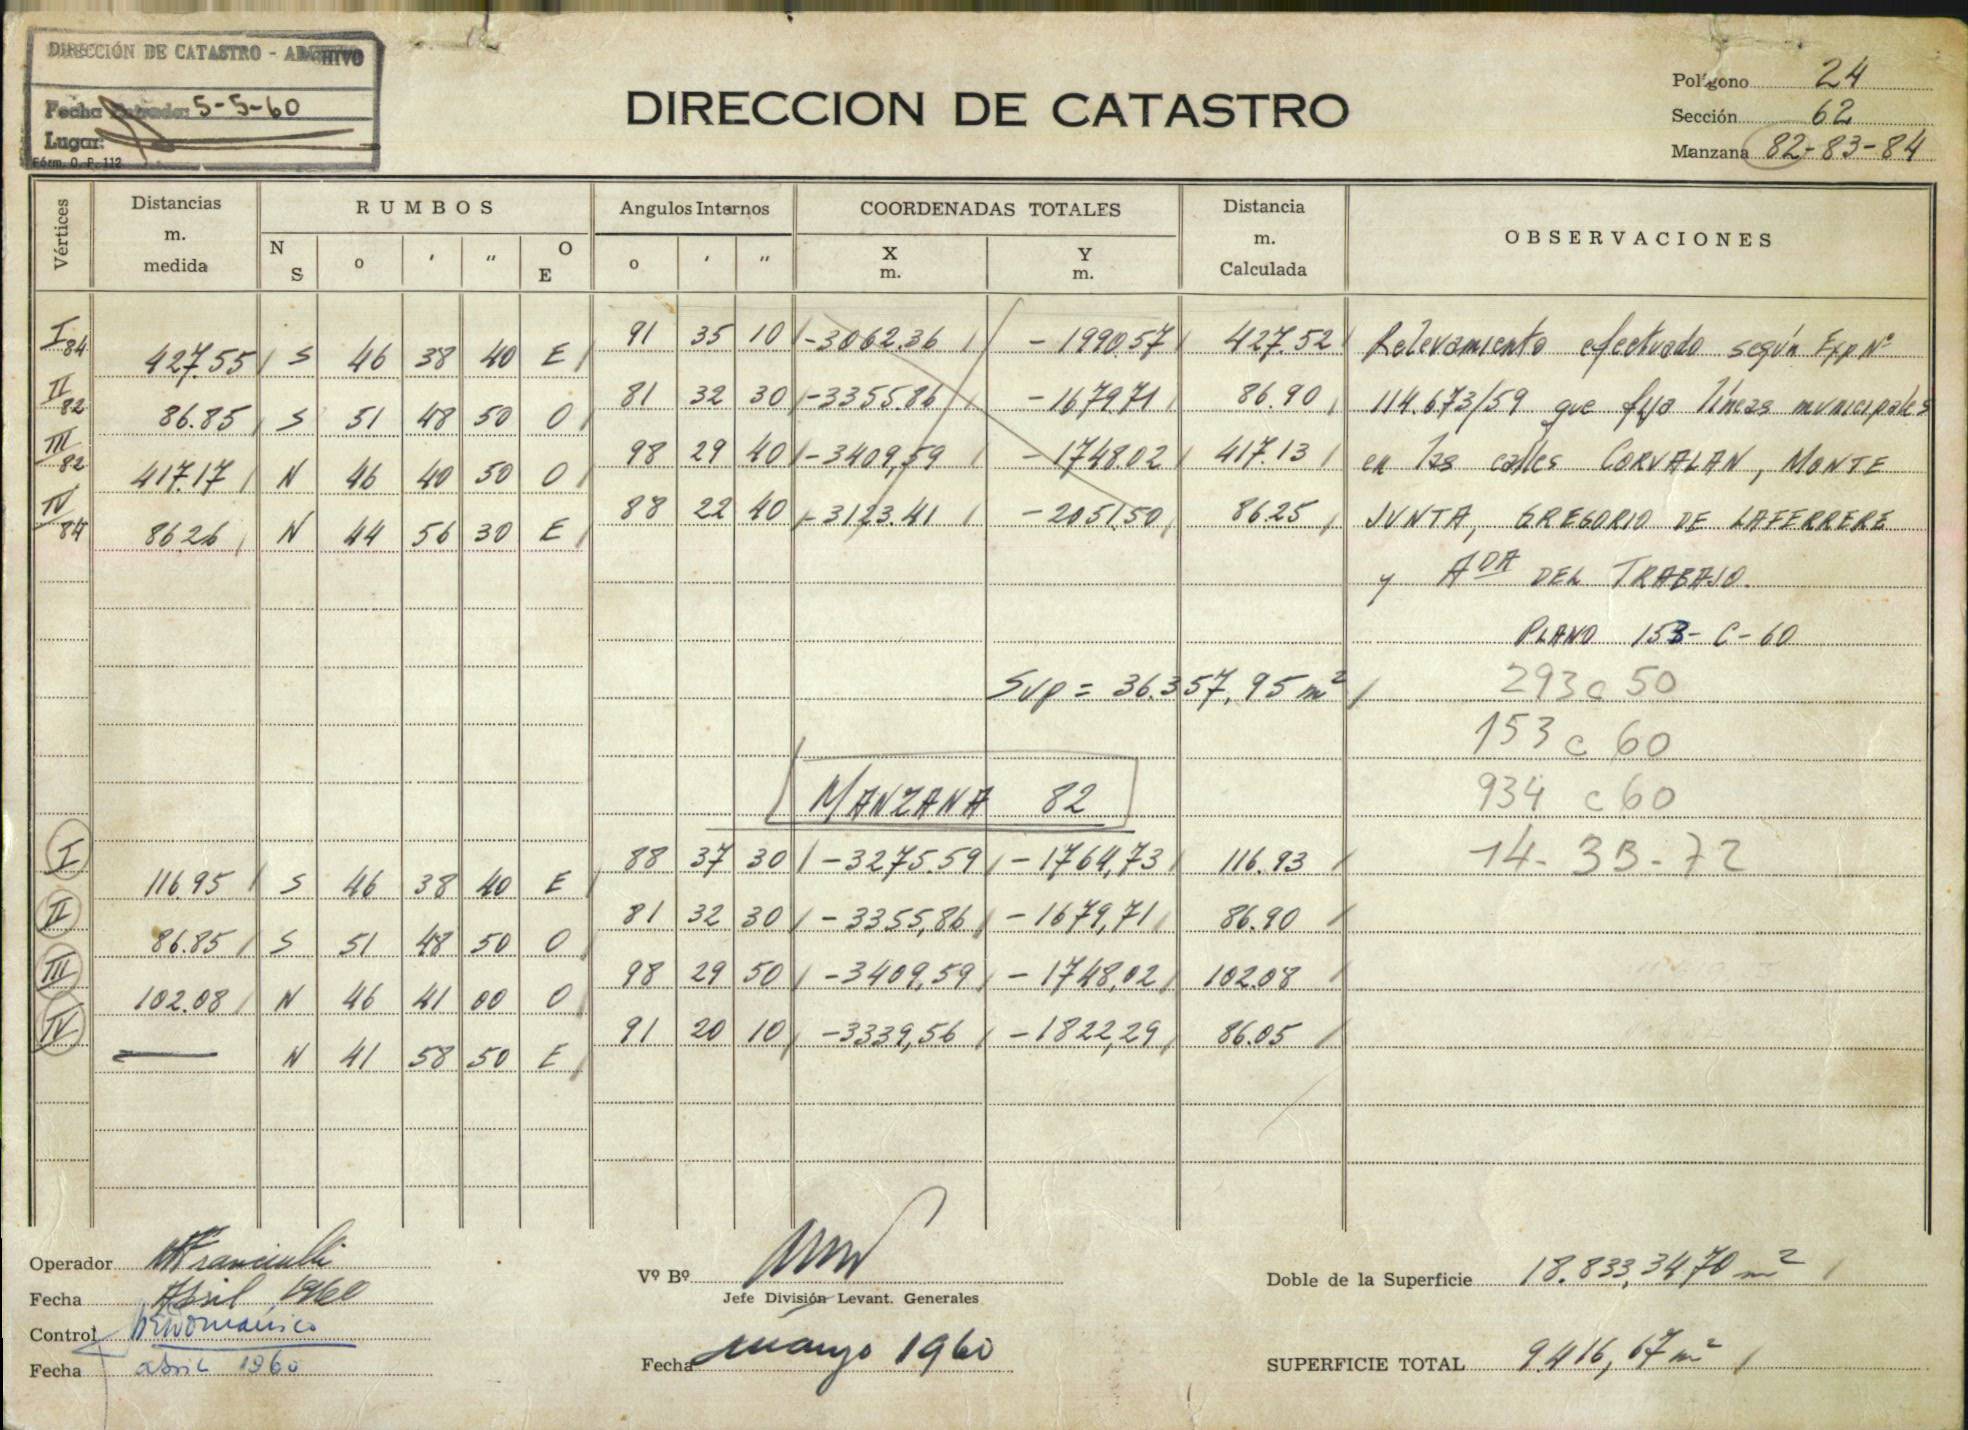 DIRECCIÓN DE CATASTRO - ARCHIVO
Fecha Entrada: 5-5-60
Lugar:
Fórm. O. P. 112
DIRECCION DE CATASTRO
Polígono 24
Sección 62
Manzana 82-83-84
Vértices
Distancias m. medida
RUMBOS
N S o ′ ″ O E
Angulos Internos
o ′ ″
COORDENADAS TOTALES
X m. Y m.
Distancia m. Calculada
OBSERVACIONES
I 84 427.55 S 46 38 40 E 91 35 10 -3062.36 -1990.57 427.52 Relevamiento efectuado según Exp Nº
II 82 86.85 S 51 48 50 O 81 32 30 -3355.86 -1679.71 86.90 114.673/59 que fija líneas municipales
III 82 417.17 N 46 40 50 O 98 29 40 -3409,59 -1748.02 417.13 en las calles CORVALAN, MONTE
IV 84 86.26 N 44 56 30 E 88 22 40 -3123.41 -2051.50 86.25 JUNTA, GREGORIO DE LAFERRERE
y ADA DEL TRABAJO.
PLANO 153- C-60
Sup = 36.357,95 m² 293c 50
153 c 60
MANZANA 82 934 c 60
I 116.95 S 46 38 40 E 88 37 30 -3275.59 -1764,73 116.93 14-3B-72
II 86.85 S 51 48 50 O 81 32 30 -3355,86 -1679,71 86.90
III 102.08 N 46 41 00 O 98 29 50 -3409,59 -1748,02 102.08
IV — N 41 58 50 E 91 20 10 -3339,56 -1822,29 86.05
Operador
Fecha Abril 1960
Control
Fecha abril 1960
Vº Bº
Jefe División Levant. Generales
Fecha mayo 1960
Doble de la Superficie 18.833,3470 m²
SUPERFICIE TOTAL 9.416,67 m²